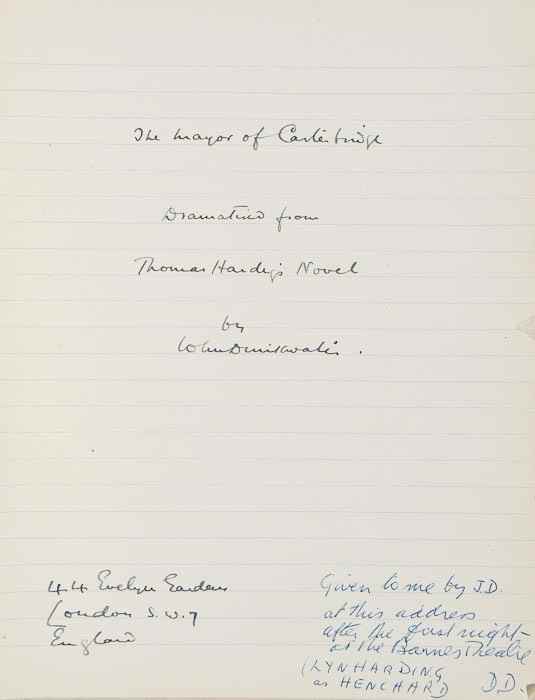 The Mayor of Casterbridge
Dramatised from
Thomas Hardy's Novel
by
John Drinkwater.
44 Evelyn Gardens
London S.W.7
England
Given to me by J.D.
at this address
after the first night-
at the Barnes Theatre
(LYN HARDING
as HENCHARD
D.D.